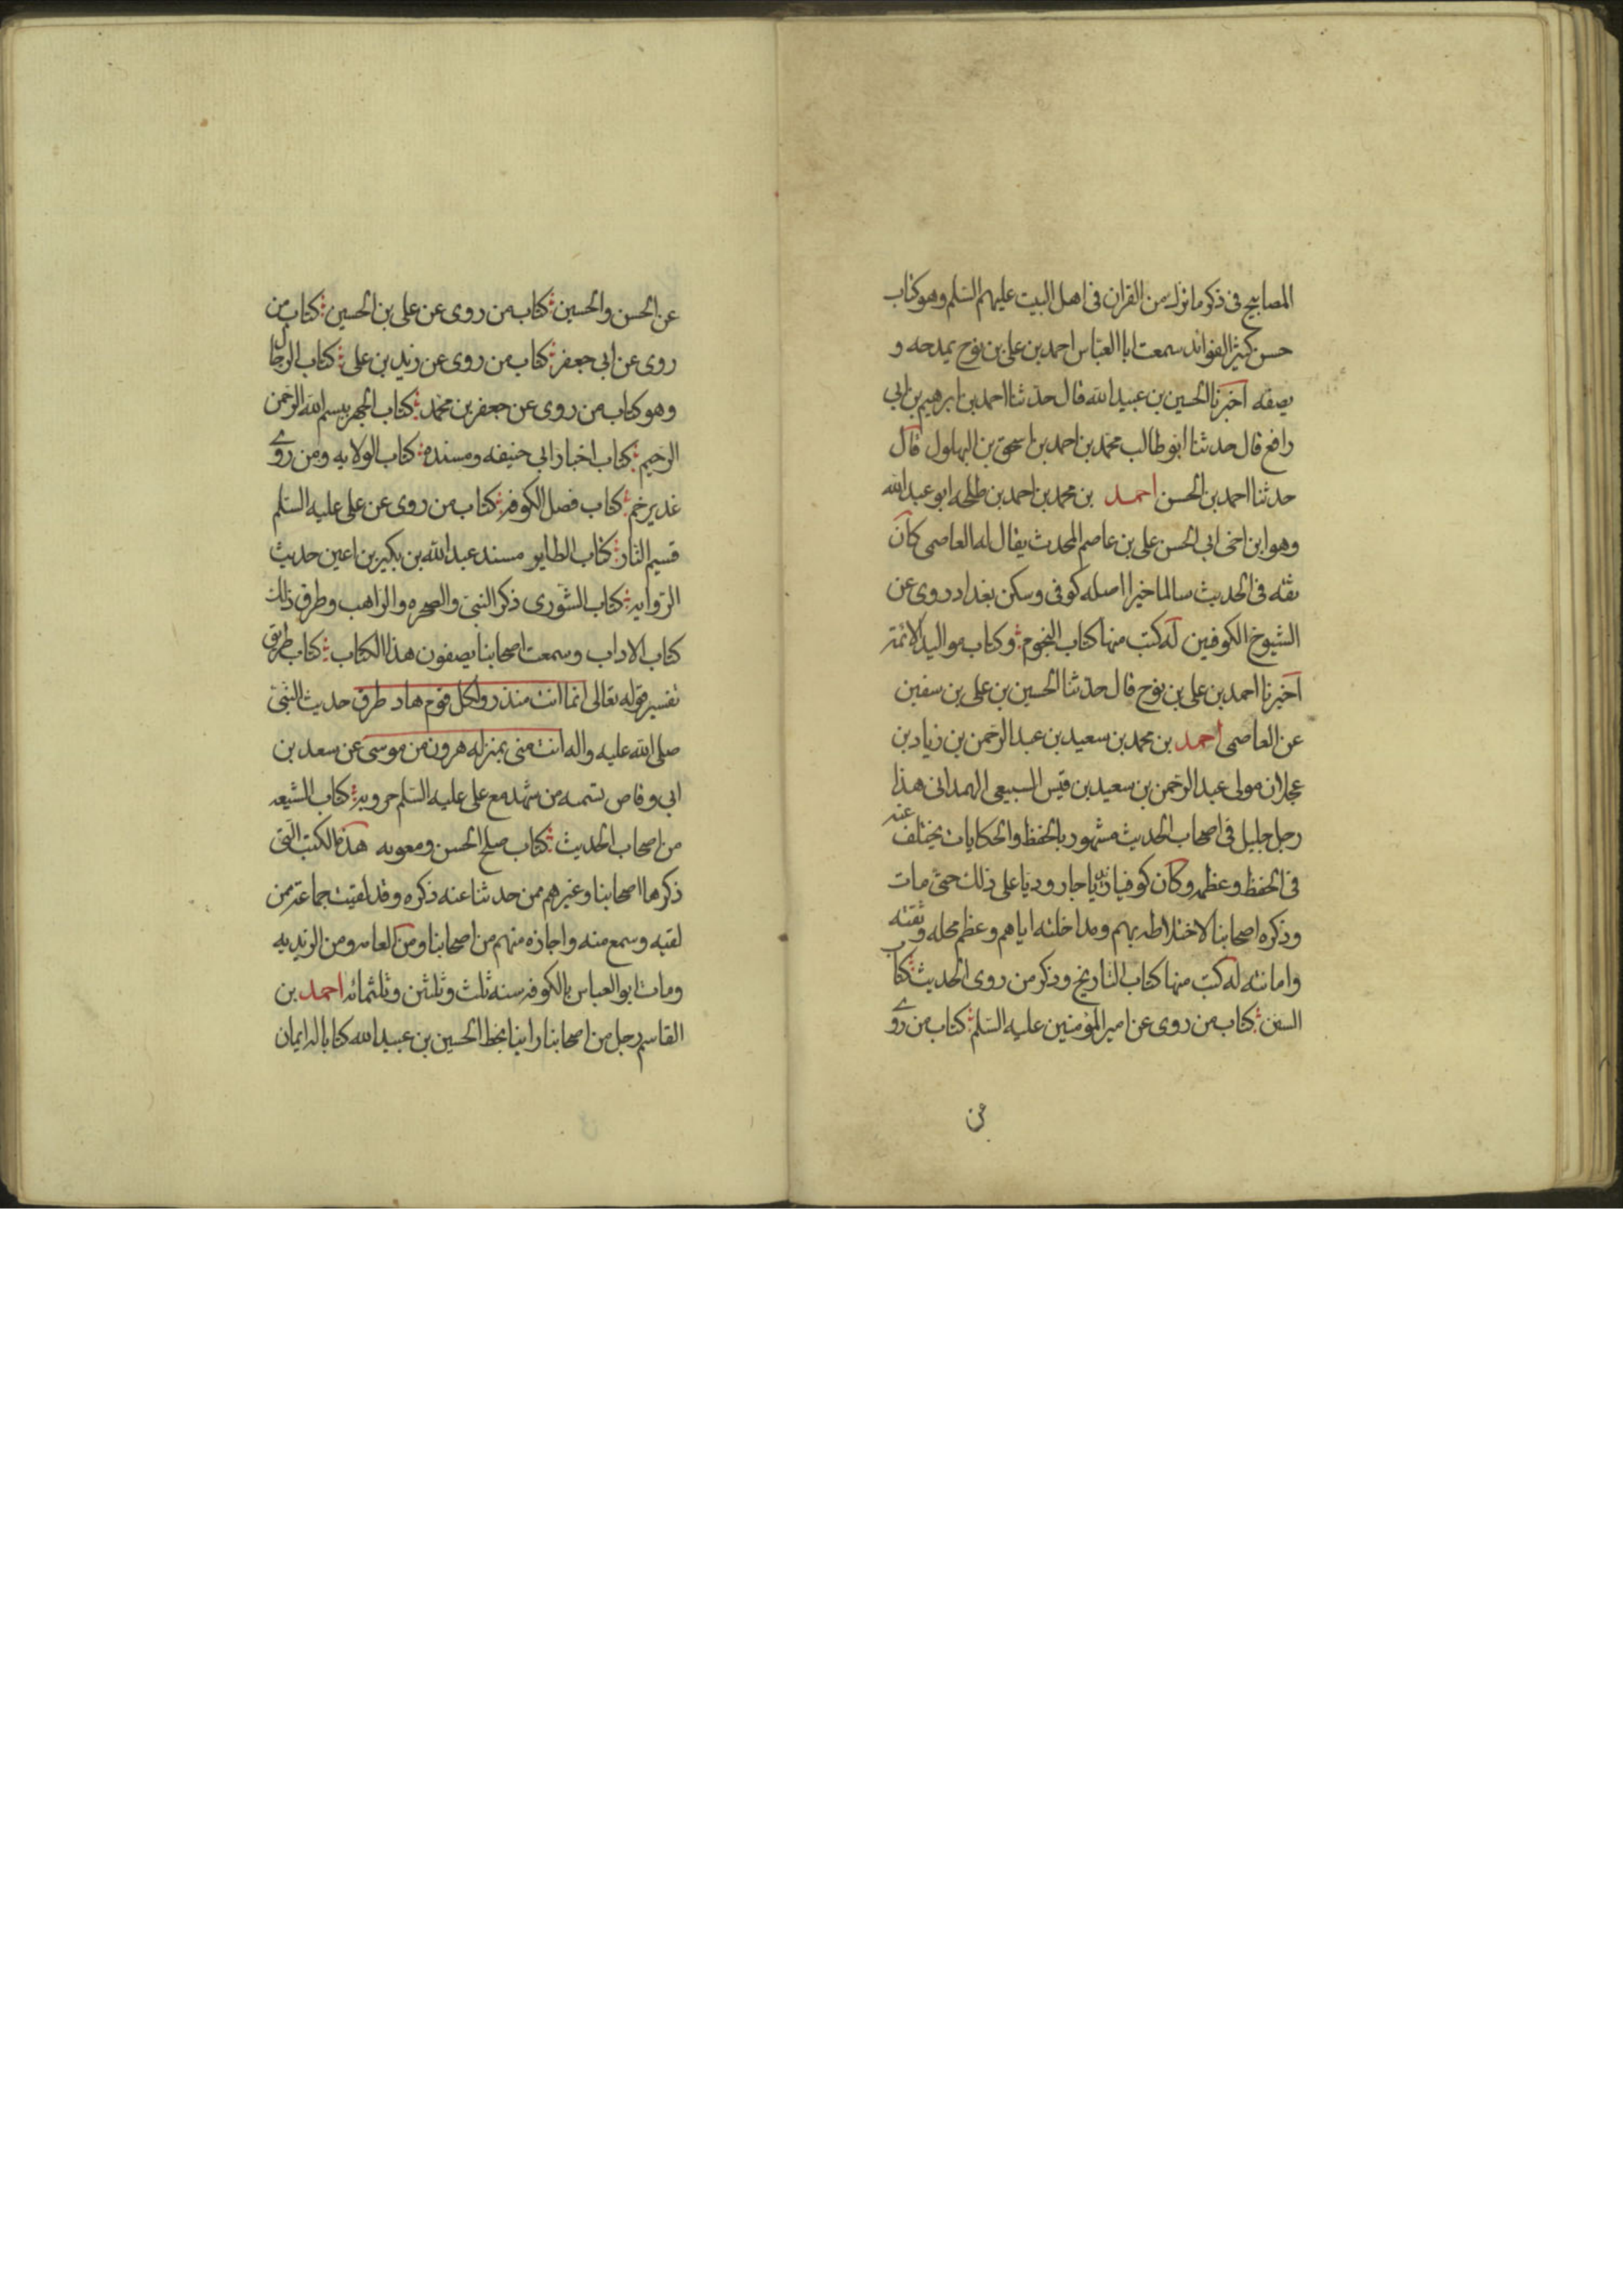 المصابيح فى ذكر ما نزل من القران فى اهل البيت عليهم السلم وهو كتاب
حسن كثير الفوائد سمعت ابا العباس احمد بن على بن نوح يمدحه و
يصفه اخبرنا الحسين بن عبيد الله قال حدثنا احمد بن ابرهيم بن ابى
رافع قال حدثنا ابو طالب محمد بن احمد بن اسحق بن البهلول قال
حدثنا احمد بن الحسن احمد بن محمد بن احمد بن طلحه ابو عبد الله
وهو ابن اخى ابى الحسن على بن عاصم المحدث يقال له العاصمى كان
ثقه فى الحديث سالما خيرا اصله كوفى وسكن بغداد روى عن
الشيوخ الكوفيين له كتب منها كتاب النجوم وكتاب مواليد الائمة
اخبرنا احمد بن على بن نوح قال حدثنا الحسين بن على بن سفين
عن العاصمى احمد بن محمد بن سعيد بن عبد الرحمن بن زياد بن
عجلان مولى عبد الرحمن بن سعيد بن قيس السبيعى الهمدانى هذا
رجل جليل فى اصحاب الحديث مشهور بالحفظ والحكايات يختلف عنه
فى الحفظ وعظمه وكان كوفيا زيديا جاروديا على ذلك حتى مات
وذكره اصحابنا لاختلاطه بهم ومداخلته اياهم وعظم محله وثقته
وامانته له كتب منها كتاب التاريخ وذكر من روى الحديث كتاب
السنن كتاب من روى عن امير المؤمنين عليه السلم كتاب من روى
عن
عن الحسن والحسين كتاب من روى عن على بن الحسين كتاب من
روى عن ابى جعفر كتاب من روى عن زيد بن على كتاب الرجال
وهو كتاب من روى عن جعفر بن محمد كتاب الجهر ببسم الله الرحمن
الرحيم كتاب اخبار ابى حنيفه ومسنده كتاب الولايه ومن روى
غدير خم كتاب فضل الكوفه كتاب من روى عن على عليه السلم
قسيم النار كتاب الطاير مسند عبد الله بن بكير بن اعين حديث
الرواية كتاب الشورى ذكر النبى والصخره والراهب وطرق ذلك
كتاب الاداب وسمعت اصحابنا يصفون هذا الكتاب كتاب طريق
تفسير قوله تعالى انما انت منذر ولكل قوم هاد طرق حديث النبى
صلى الله عليه واله انت منى بمنزله هرون من موسى عن سعد بن
ابى وقاص تسميه من شهد مع على عليه السلم حروبه كتاب الشيعه
من اصحاب الحديث كتاب صلح الحسن ومعويه هذه الكتب التى
ذكرها اصحابنا وغيرهم ممن حدثنا عنه ذكره وقد لقيت جماعة ممن
لقيه وسمع منه واجازه منهم من اصحابنا ومن العامه ومن الزيديه
ومات ابو العباس بالكوفه سنه ثلث وثلثين وثلثمائه احمد بن
القاسم رجل من اصحابنا راينا بخط الحسين بن عبيد الله كتابا له ايمان